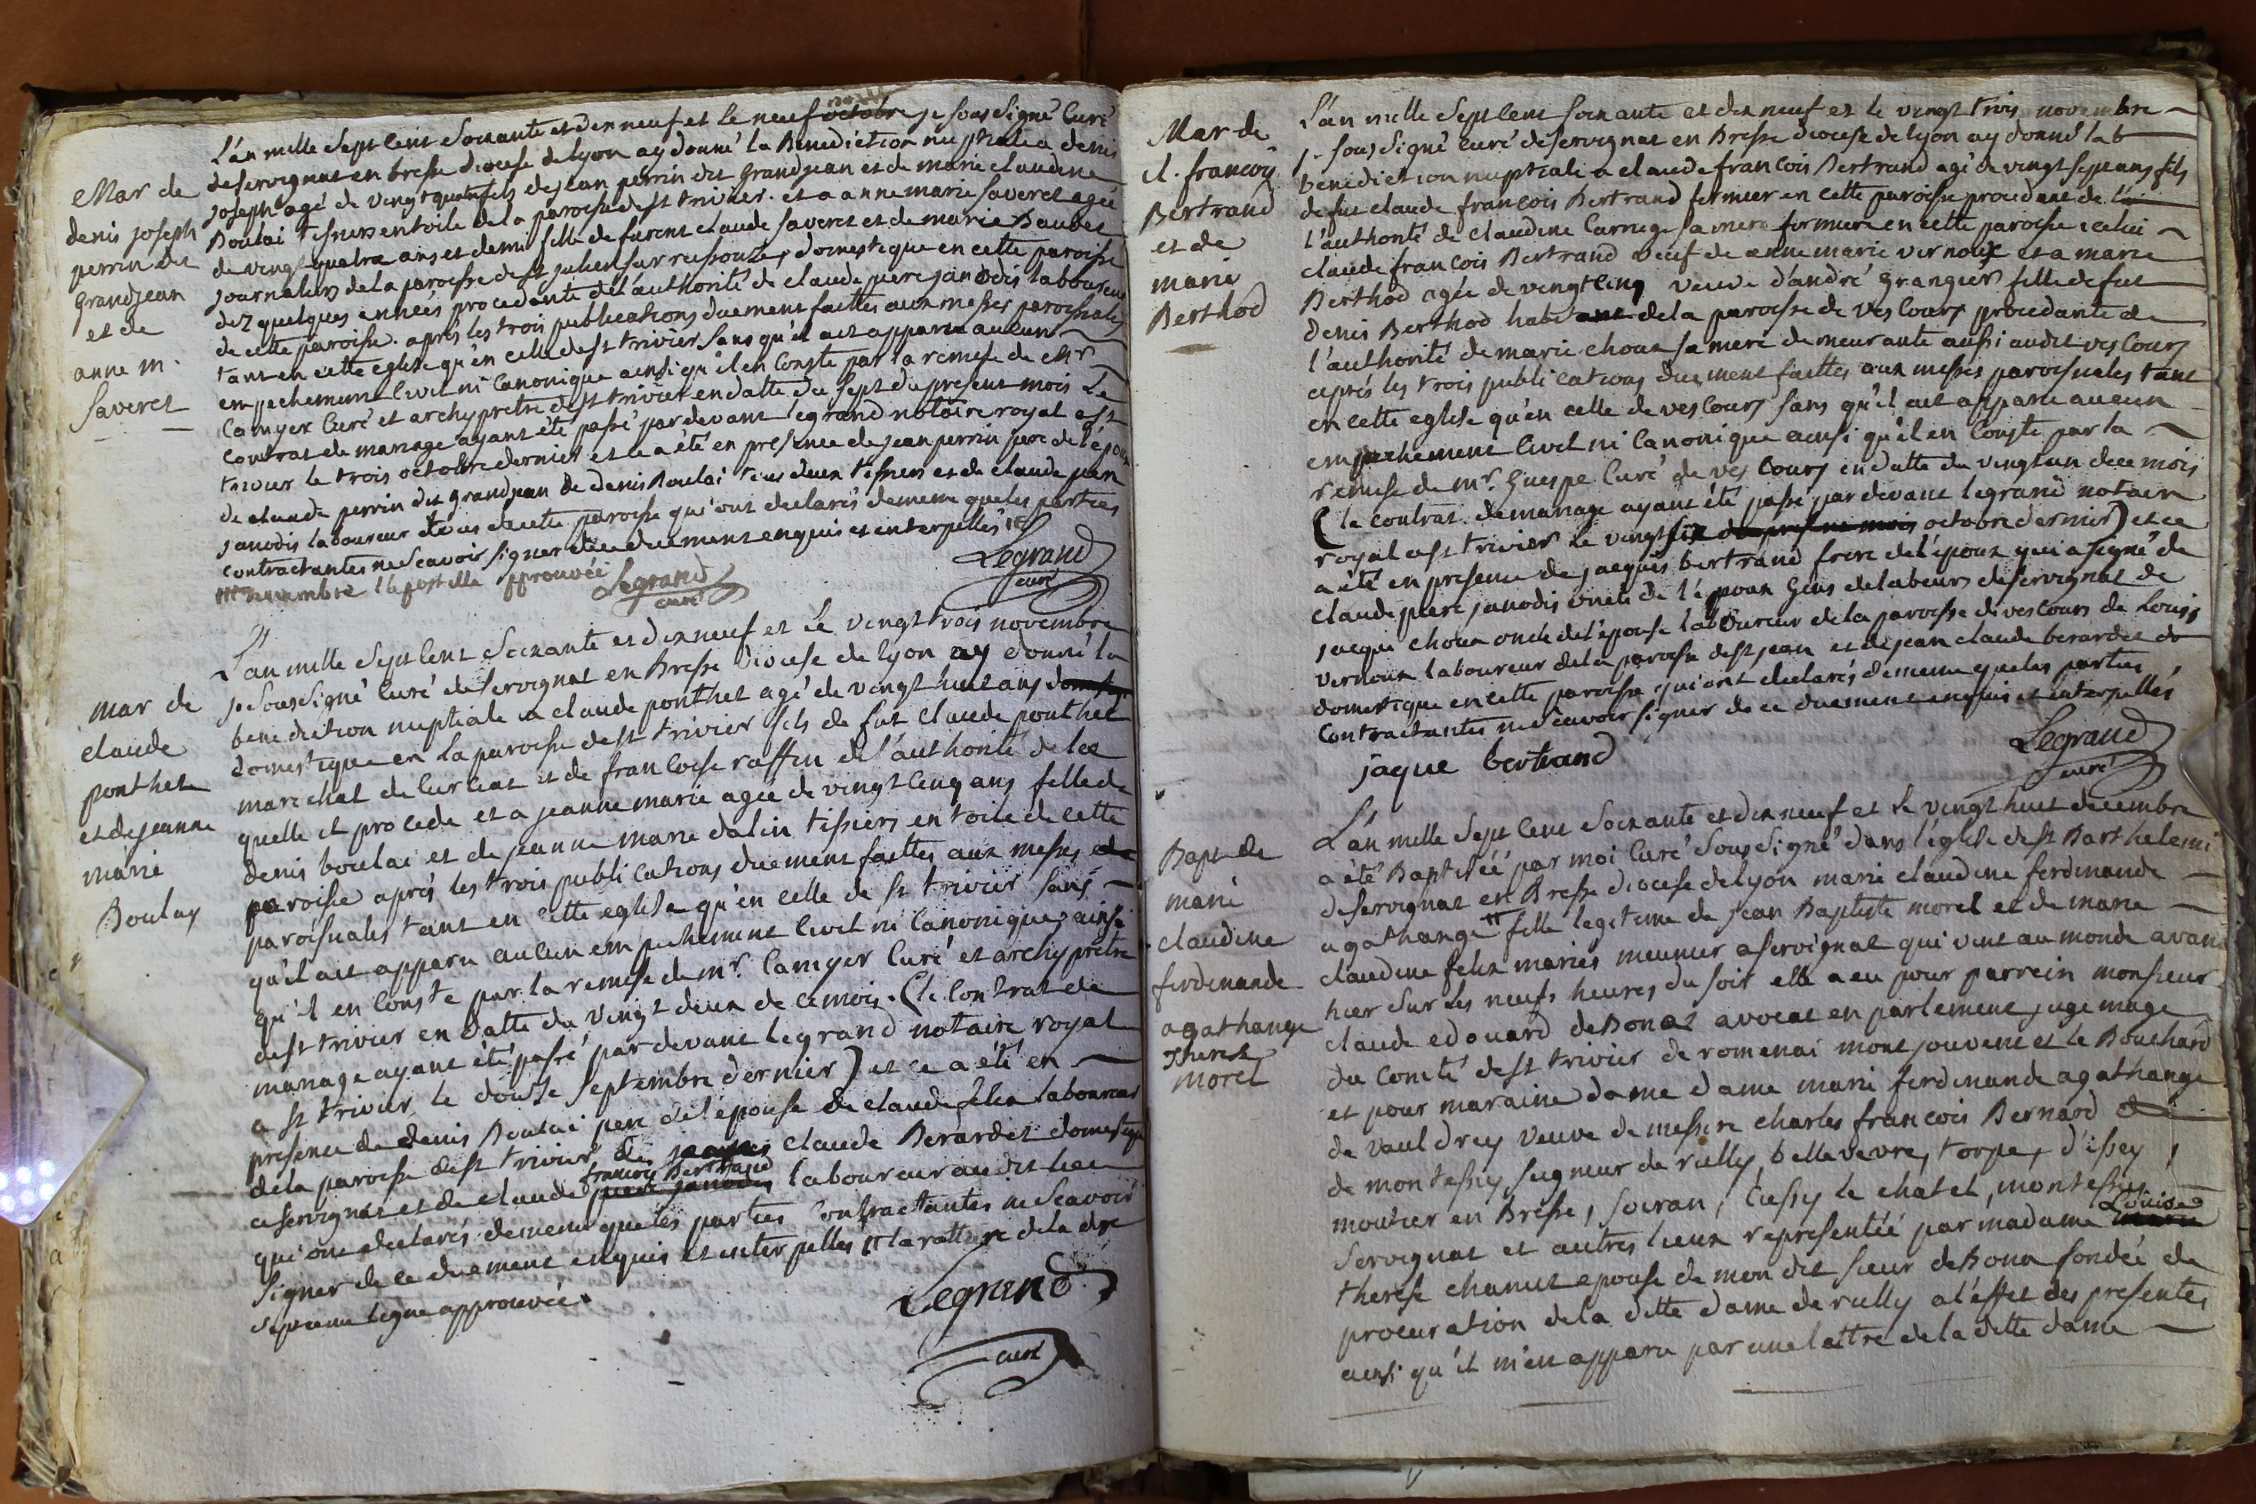 Mar de
denis joseph
perrin dit
Grandjean
et de
anne m.
Saveret
L'an mille Sept Cent Soixante et dixneuf et le neuf octobre je sous Signé Curé
de Servignat en bresse diocese de lyon ay donné la Benediction nuptiale a denis
joseph agé de vingt quatre fils de jean perrin dit Grandjean et de marie claudine
Boulai tissiers en toile de la paroisse de st trivier. et a anne marie Saveret agée
de vingt quatre ans et demi fille de furent claude Saveret et de marie Baudet
journaliers de la paroisse de st julien sur ressouze, domestique en cette paroisse
dez quelques années procedante de l'authorité de claude pierre janodis laboureur
de cette paroisse. aprés les trois publications duement faittes aux messes paroissiales
tant en cette eglise qu'en celle de st trivier sans qu'il ait apparu aucun
empechement Civil ni Canonique ainsi qu'il en Conste par la remise de mr
Camyer Curé et archypretre de st trivier en datte du sept du present mois Le
contrat de mariage ayant été passé pardevant legrand notaire royal a st
trivier le trois octobre dernier et ce a été en presence de jean perrin pere de l'époux
de claude perrin dit grandjean de denis Boulai tous deux tissiers et de claude pierre
janodis laboureur tous de cette paroisse qui ont declarés de meme que les parties
contractantes ne scavoir signer de ce duement enquis et interpellés
novembre l'apostille approuvée Legrand curé
Legrand
curé
mar de
claude
ponthet
et de jeanne
marie
Boulay
L'an mille Sept Cent Soixante et dixneuf et le vingt trois novembre
je Sous Signé Curé de Servignat en Bresse diocese de lyon ay donné la
benediction nuptiale a claude ponthet agé de vingt huit ans domestique
domestique en la paroisse de st trivier fils de fut Claude ponthet
marechal de Curciat et de francoise raffin de l'authorité de la
quelle il procede et a jeanne marie agée de vingt Cinq ans fille de
denis boulai et de jeanne marie dalin tissiers en toile de cette
paroisse aprés les trois publications duement faittes aux messes
paroissiales tant en cette eglise qu'en celle de st trivier sans
qu'il ait apparu aucun empechement Civil ni Canonique ainsi
qu'il en Conste par la remise de mr. Camyer Curé et archypretre
de st trivier en datte du vingt deux de ce mois. (le Contrat de
mariage ayant été passé par devant legrand notaire royal
a st trivier le douze septembre dernier) et ce a été en
presence de denis Boulai pere de l'épouse de claude felix laboureur
de la paroisse de st trivier de claude Berardet domestique
francois Bertrand
a servignat et de claude pierre janodis laboureur audit lieu
qui ont declarés de meme que les parties Contractantes ne Scavoir
Signer de ce duement enquis et interpellés la rature de la
septieme ligne approuvée.
Legrand
curé
Mar de
cl. francois
Bertrand
et de
marie
Berthod
L'an mille Sept Cent soixante et dix neuf et le vingt trois novembre
je sous signé curé de servignat en Bresse diocese de lyon ay donné la b
benediction nuptiale a claude francois Bertrand agé de vingt sept ans fils
de fut claude francois Bertrand fermier en cette paroisse procedant de
l'authorité de claudine Carruge sa mere fermiere en cette paroisse icelui
claude francois Bertrand veuf de anne marie vernoux et a marie
Berthod agée de vingt Cinq veuve d'andré Grangier fille de fut
denis Berthod habitant de la paroisse de Vescours procedante de
l'authorité de marie choux sa mere demeurante aussi audit vescours
aprés les trois publications duement faittes aux messes paroissiales tant
en cette eglise qu'en celle de vescours sans qu'il ait apparu aucun
empechement Civil ni Canonique ainsi qu'il en Conste par la
remise de mr. Guespe Curé de vescours en datte du vingt un de ce mois
(le contrat de mariage ayant été passé par devant legrand notaire
royal a st trivier le vingt six du present mois octobre dernier) et ce
a été en presence de jacques bertrand frere de l'époux qui a signé de
claude pierre janodis oncle de l'époux Gens de labeurs de servignat de
jacque choux oncle de l'épouse laboureur de la paroisse de vescours de Louis
vernoux laboureur de la paroisse de st jean et de jean claude berardet
domestique en cette paroisse qui ont declarés de meme que les parties
Contractantes ne scavoir signer de ce duement enquis et interpellés
jaque bertrand
Legrand
curé
Bapt de
marie
claudine
ferdinande
agathange
therese
morel
L'an mille Sept Cent Soixante et dixneuf et le vingt huit decembre
a été Baptisée par moi Curé Sous Signé dans l'église de st Barthelemi
de servignat en Bresse diocese de lyon marie claudine ferdinande
agathange fille legitime de jean Baptiste morel et de marie
claudine felix mariés meunier a servignat qui vint au monde avant
hier sur les neufs heures du soir elle a eu pour parrein monsieur
claude edouard deBona avocat en parlement, juge mage
du Comté de st trivier de romenai mont jouvent et le Bouchard
et pour maraine dame dame marie ferdinande agathange
de Vauldrey Veuve de messire charles francois Bernard
de montessy seigneur de rully, bellevevre, torpe, d'issey,
moutier en Bresse, soiran, Cussy le chatel, montessy,
Louise
Servignat et autres lieux representée par madame marie
therese chanut epouse de mon dit sieur deBona fondée de
procuration de la ditte dame de rully a l'effet des presentes
ainsi qu'il m'en apparu par une lettre de la ditte dame